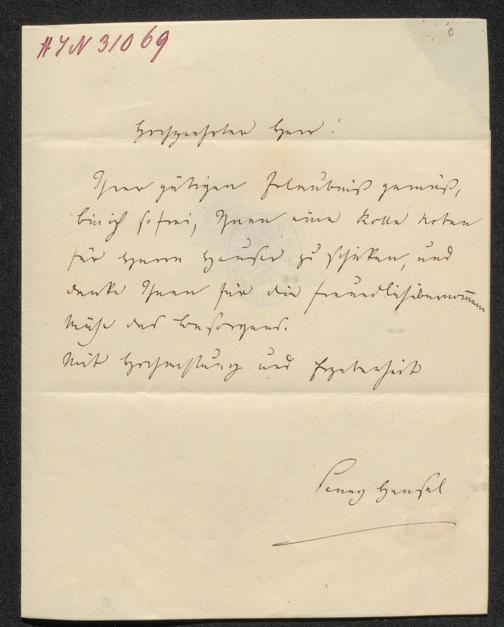 HIN 31069
Hochgeehrter Herr!
Ihrer gütigen Erlaubniß gemäß,
bin ich so frei, Ihnen eine Rolle Noten
für Herrn Hauser zu schicken, und
danke Ihnen für die freundlich übernommene
Mühe des Besorgens.
Mit Hochachtung und Ergebenheit
Fanny Hensel